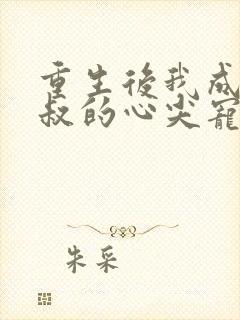 重生後我成
叔的心尖寵
朱采